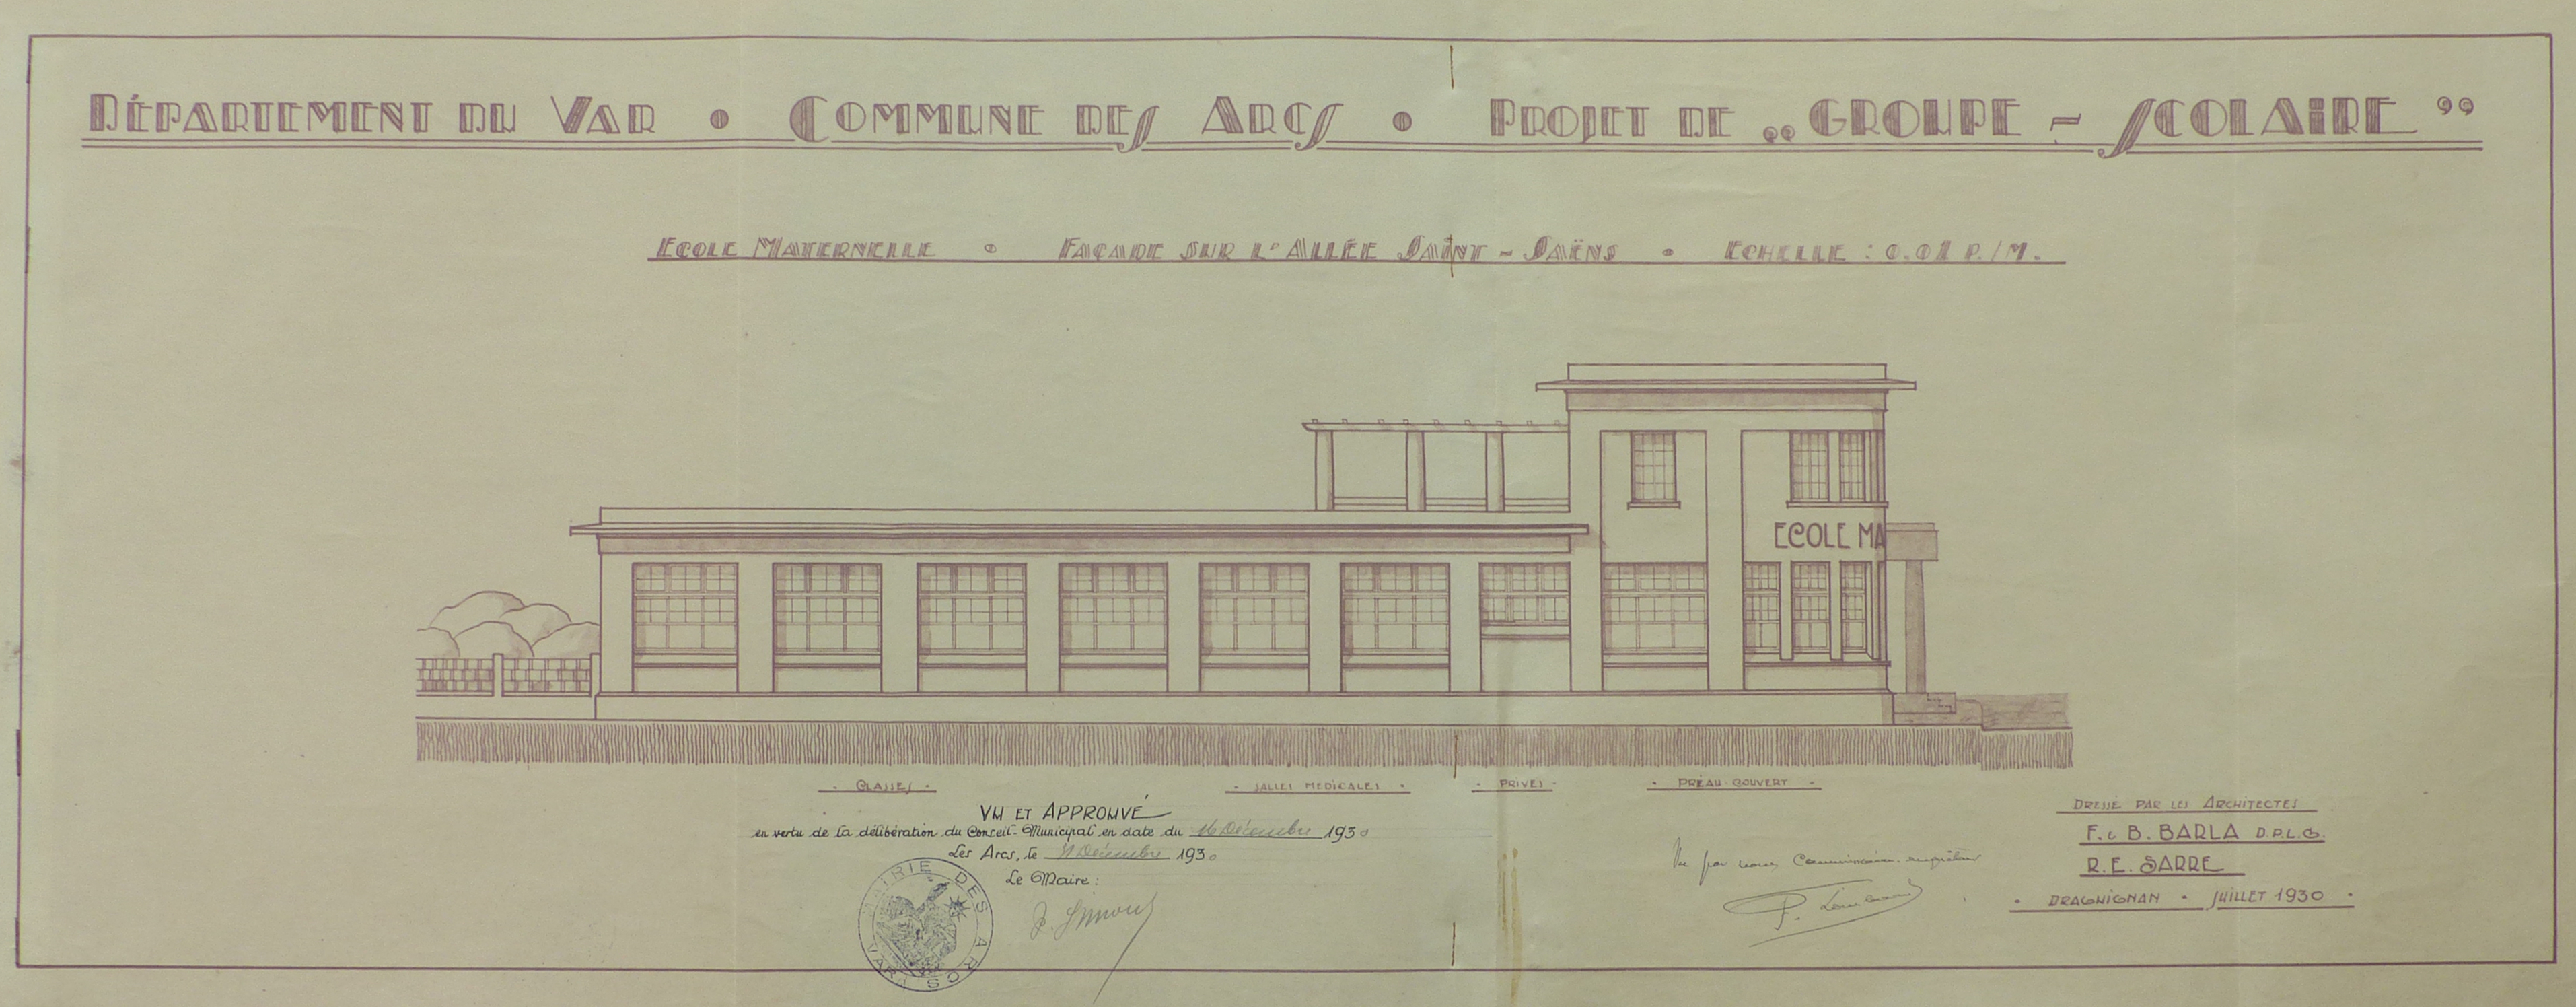 DÉPARTEMENT DU VAR • COMMUNE DES ARCS • PROJET DE „GROUPE - SCOLAIRE”
ECOLE MATERNELLE • FAÇADE SUR L'ALLÉE SAINT-SAËNS • ECHELLE : 0.01 P./M.
ECOLE MA
• CLASSES •
• SALLES MEDICALES •
• PRIVES •
• PRÉAU COUVERT •
VU ET APPROUVÉ
en vertu de la délibération du Conseil-Municipal en date du 16 Décembre 1930
Les Arcs, le Décembre 1930
Le Maire :
MAIRIE DES ARCS (VAR)
Vu par nous Commissaire-enquêteur
DRESSÉ PAR LES ARCHITECTES
F. & B. BARLA D.P.L.G.
R.E. SARRE
• DRAGUIGNAN • JUILLET 1930 •